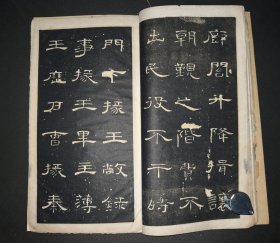 廊閣升降揖讓
朝覲之階費不
出民役不干時
門下掾王敞錄
事掾王畢主簿
王歷戶曹掾秦